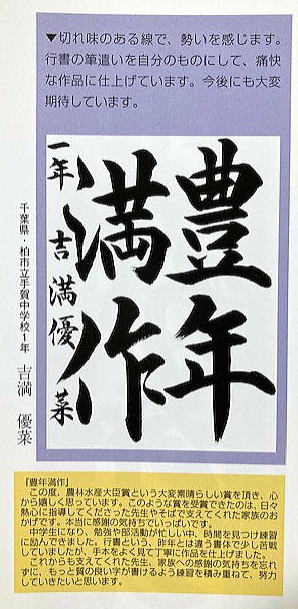 ▼切れ味のある線で、勢いを感じます。
行書の筆遣いを自分のものにして、痛快
な作品に仕上げています。今後にも大変
期待しています。
豊年
満作
一年 吉満優菜
千葉県・柏市立手賀中学校1年 吉満 優菜
『豊年満作』
この度、農林水産大臣賞という大変素晴らしい賞を頂き、心
から嬉しく思っています。このような賞を受賞できたのは、日々
熱心に指導してくださった先生やそばで支えてくれた家族のお
かげです。本当に感謝の気持ちでいっぱいです。
中学生になり、勉強や部活動が忙しい中、時間を見つけ練習
に励んできました。行書という、昨年とは違う書体で少し苦戦
していましたが、手本をよく見て丁寧に作品を仕上げました。
これからも支えてくれた先生、家族への感謝の気持ちを忘れ
ずに、もっと質の良い字が書けるよう練習を積み重ねて、努力
していきたいと思います。